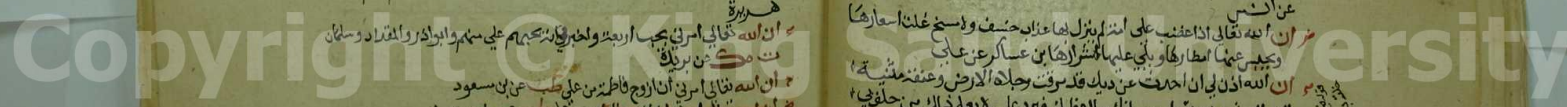 عن انس
ان الله تعالى اذا غضب على امة لم ينزل بها عذاب خسف ولا مسخ غلت اسعارها
ويحبس عنها امطارها ويلي عليها اشرارها بن عساكر عن علي
ان الله اذن لي ان احدث عن ديك قد مرقت رجلاه الارض وعنقه مثنية
هريرة
ان الله تعالى امرني بحب اربعة واخبرني انه يحبهم علي منهم وابو اذر والمقداد وسلمان
ت ك عن بريدة
ان الله تعالى امرني ان ازوج فاطمة من علي طب عن بن مسعود
Copyright © King Saud University